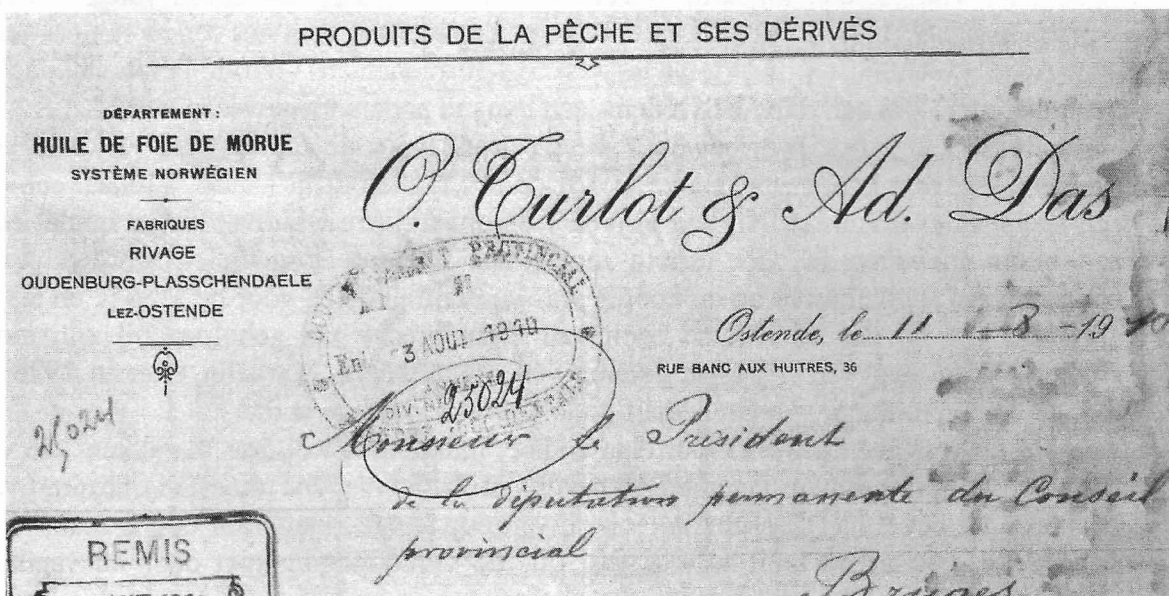 PRODUITS DE LA PÊCHE ET SES DÉRIVÉS
DÉPARTEMENT :
HUILE DE FOIE DE MORUE
SYSTÈME NORWÉGIEN
FABRIQUES
RIVAGE
OUDENBURG-PLASSCHENDAELE
LEZ-OSTENDE
O. Turlot & Ad. Das
PROVINCIAL
3 AOUT 1910
ANNEXE
25024
Ostende, le 11 - 8 - 1910
RUE BANC AUX HUITRES, 36
25024
Monsieur le Président
de la députation permanente du Conseil
provincial
Bruges
REMIS